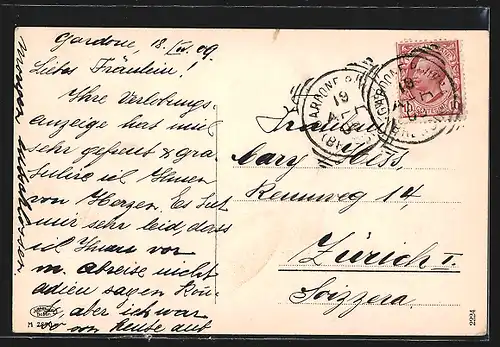 Gardone, 18. IV. 09.
Liebes Fräulein!
Ihre Verlobungs-
anzeige hat mich
sehr gefreut & gra-
tulire ich Ihnen
von Herzen. Es tut
mir sehr leid, dass
ich Ihnen vor
m. Abreise nicht
adieu sagen konn-
te, aber ich war
von heute auf
morgen
Fräulein
Cary Hess,
Rennweg 14,
Zürich I.
Svizzera.
2224